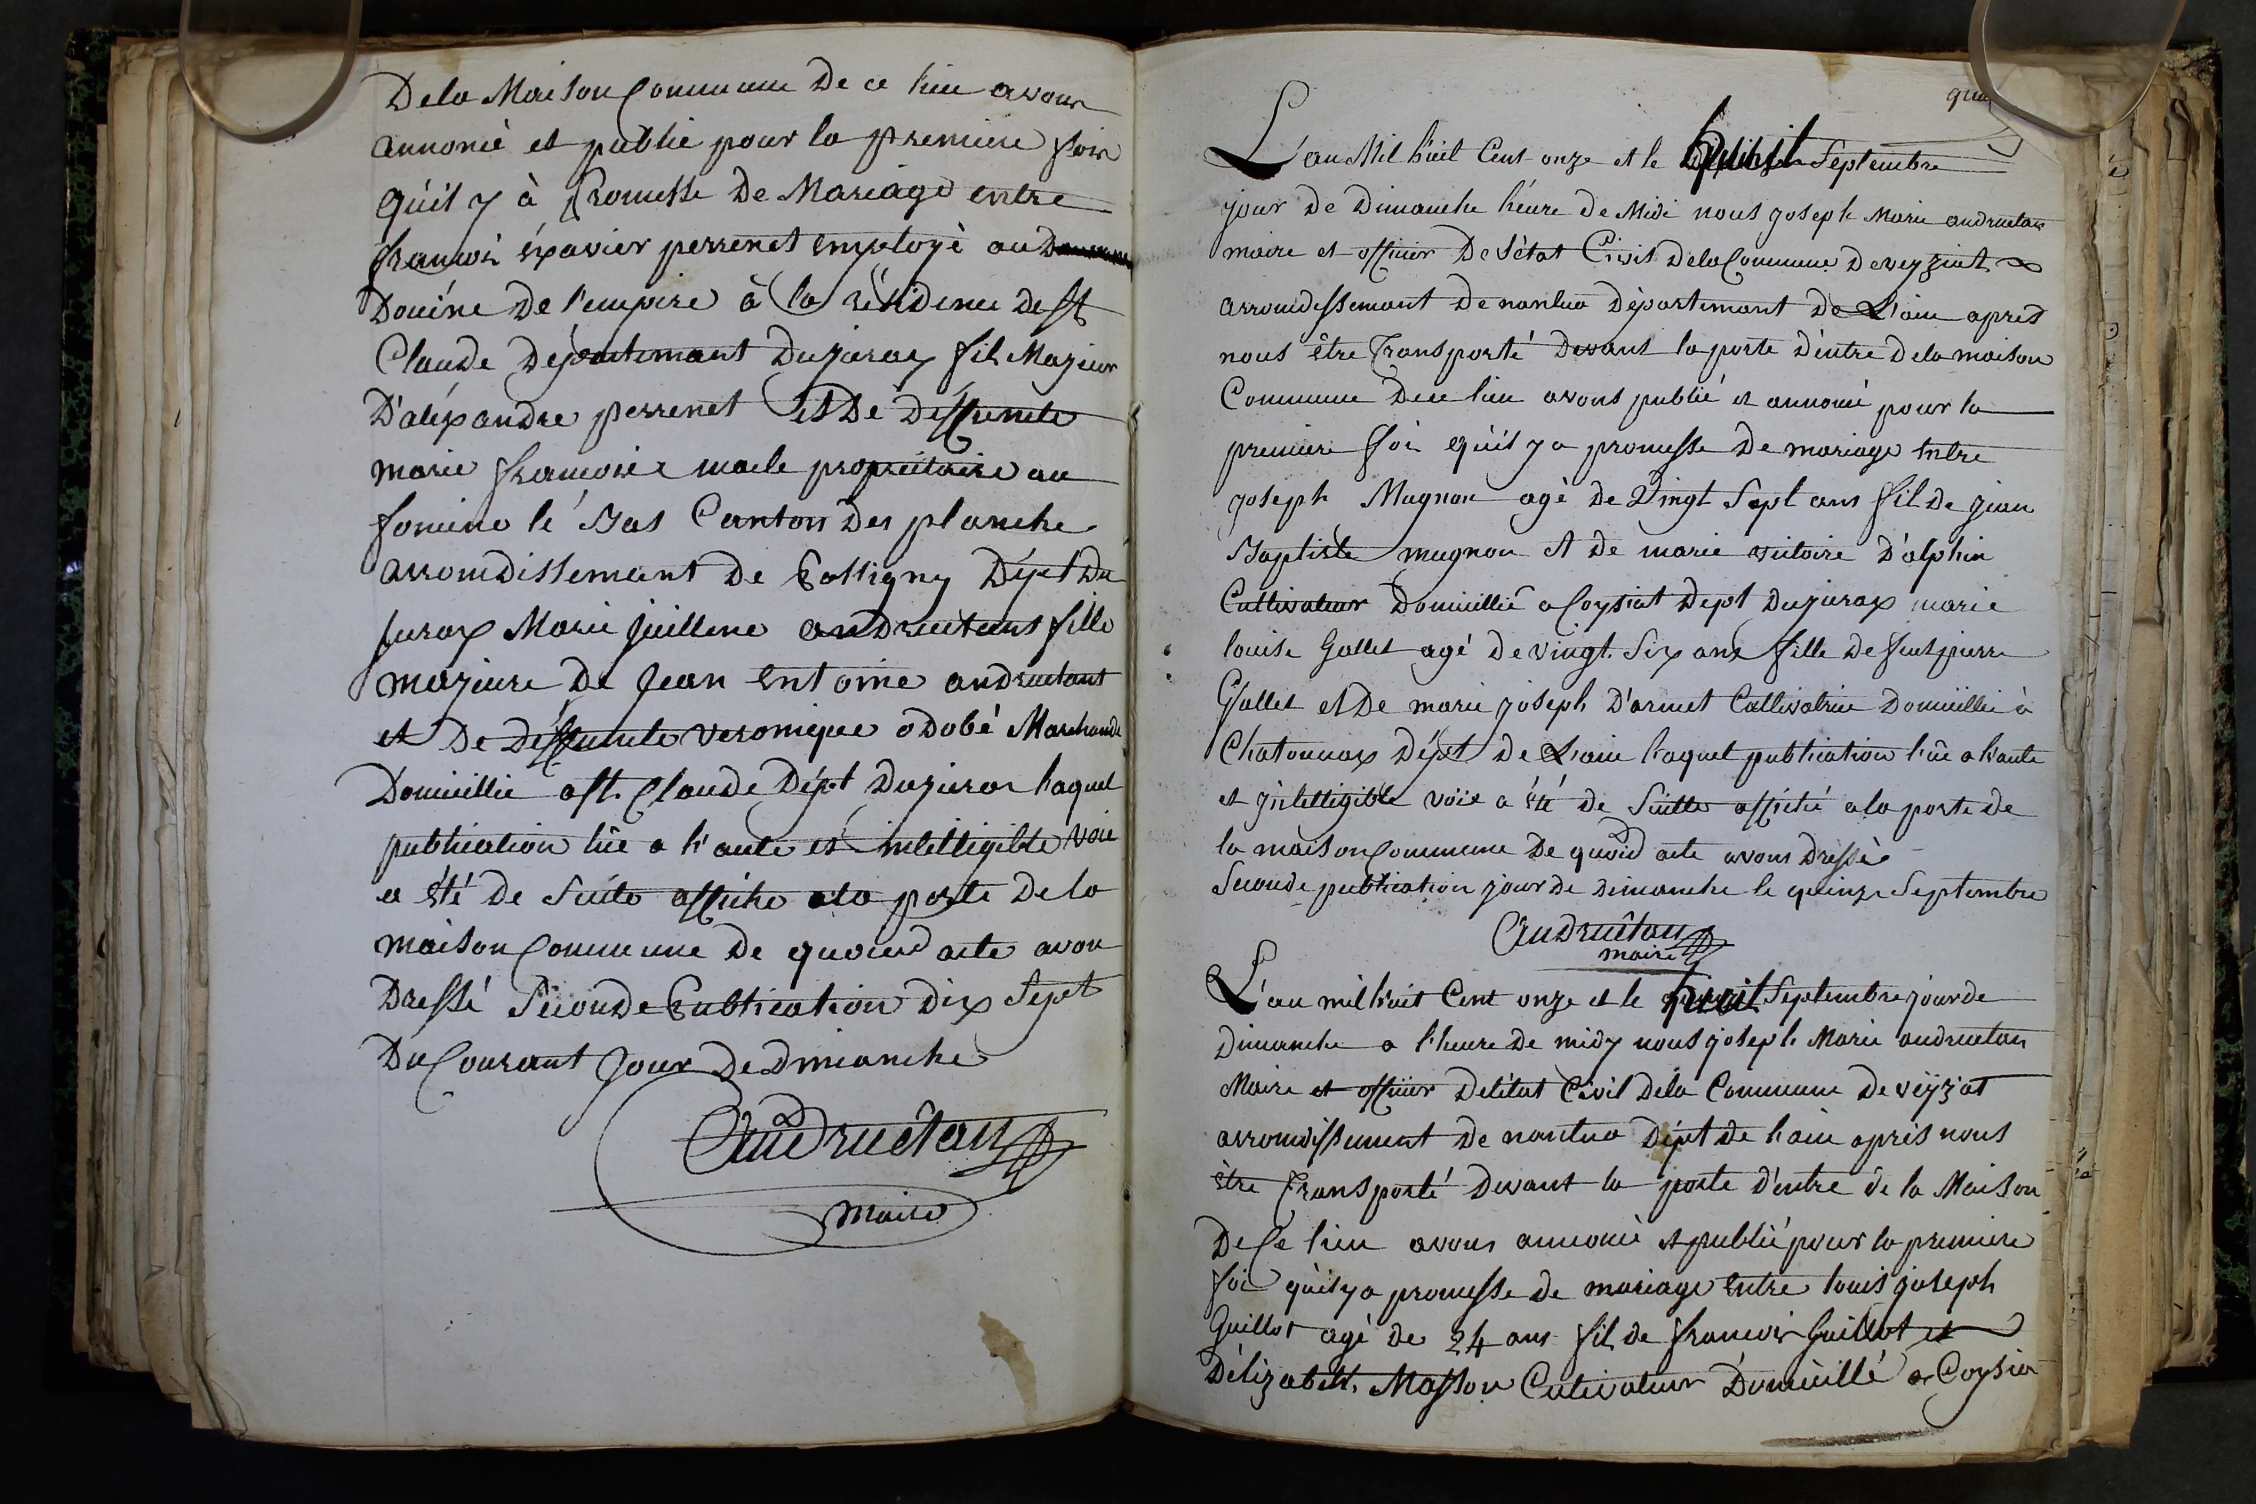 Dela Maison Commune De ce lieu avons
annoncé et publié pour la premiere fois
qu'il y à promesse De Mariage entre
francois éxavier perrenet employé au
Douéne De l'empire à la résidence De St
Claude Département Dujurax fils Majeur
D'aléxandre perrenet et De Deffunte
marie francoise propriétaire au
foncine le bas Canton Des planche
arrondissemant De Polligny Dépt Du
Jurax Marie Juillene andruetant fille
majeure De Jean entoine andruetant
et De Deffunte veronique odobé Marchande
Domicillié a St. Claude Dépt Dujurax laquel
publication lûe a h'aute et intelligible voie
a été de Suite affiche ala porte Dela
maison Commune De quoid acte avon
Dressé Séconde Publication Dix Sept
Du Courant Jour De Dmianche
Andruétan
Maire
L'an Mil huit Cent onze et le huit Septembre
jour De Dimanche héure De Midi nous joseph Marie andruetan
maire et officier De l'état Civil Dela Commune De veyziat
arrondissemant De nantua Département De L'ain apres
nous être Transporté Devant la porte D'entre Dela maison
Commune De ce lieu avons publié et annoncé pour la
premiere foi qu'il y a promesse De mariage entre
joseph Mugnon agé de Vingt Sept ans fil De jean
Baptiste mugnon et De marie victoire D'alphin
Cultivateur Domicillié a Coysiat Dept Dujurax marie
louise Gallet agé De vingt. Six ans fille De feut pierre
Gallet et De marie joseph D'armet Callivatrice Domicillié à
Chatonnax Dépt De L'ain laquel publication l'ûe a h'aute
et jntelligible voix a été de Suitte affiché ala porte de
la maison Commune De quoid acte avons Dressé
Seconde publication jour de dimanche le quinze Septembre
Andruêtan
maire
L'an mil huit Cent onze et le huit Septembre jour de
Dimanche a l'heure De midy nous joseph Marie andruetan
Maire et officier De létat Civil Dela Commune De veÿziat
arrondissement De nantua Dépt de l'ain aprés nous
être Transporté Devant la porte d'entre de la Maison
De Ce lieu avons annoncé et publié pour la premiere
foi qu'il y a promesse de mariage entre louis joseph
Guillot agé de 24 ans fil de francois Guillot et
D'élizabeth. Masson Cultivateur Domicillé a Coysia